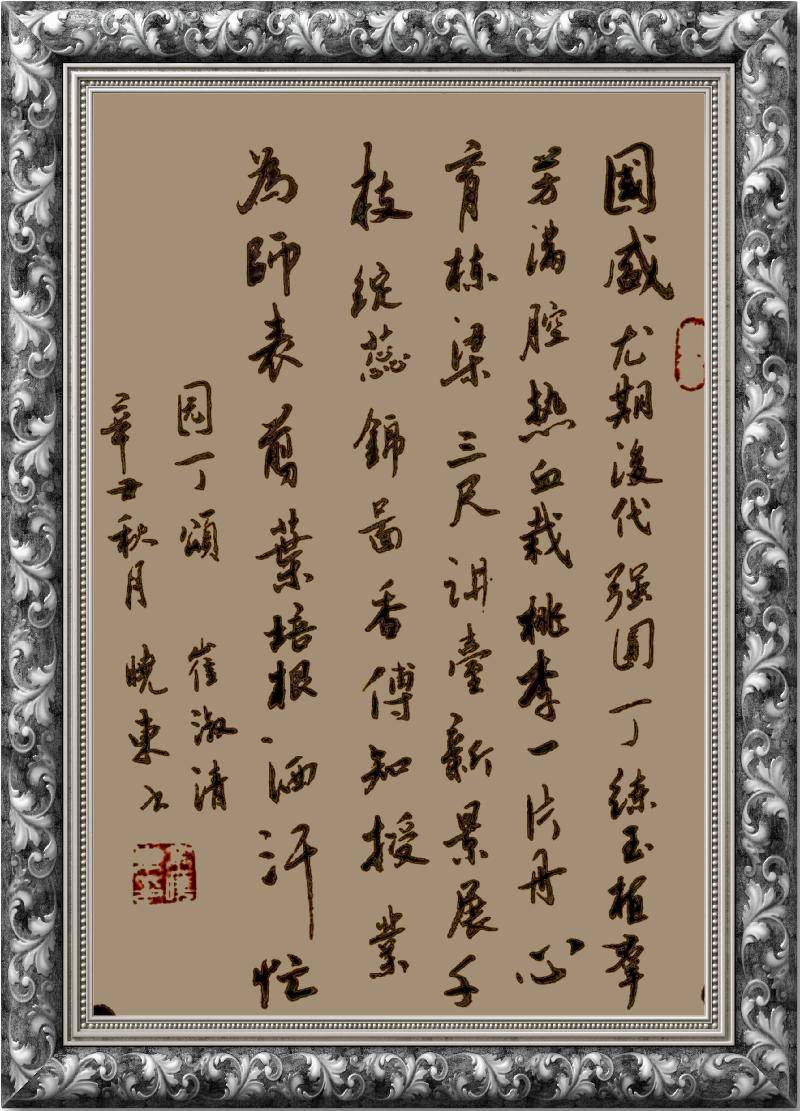 國盛尤期後代强園丁練玉植群
芳满腔热血栽桃李一片丹心
育栋梁三尺讲臺新景展千
枝绽蕊錦图香傅知授業
為師表剪葉培根洒汗忙
园丁頌 崔淑清
辛丑秋月 曉東书